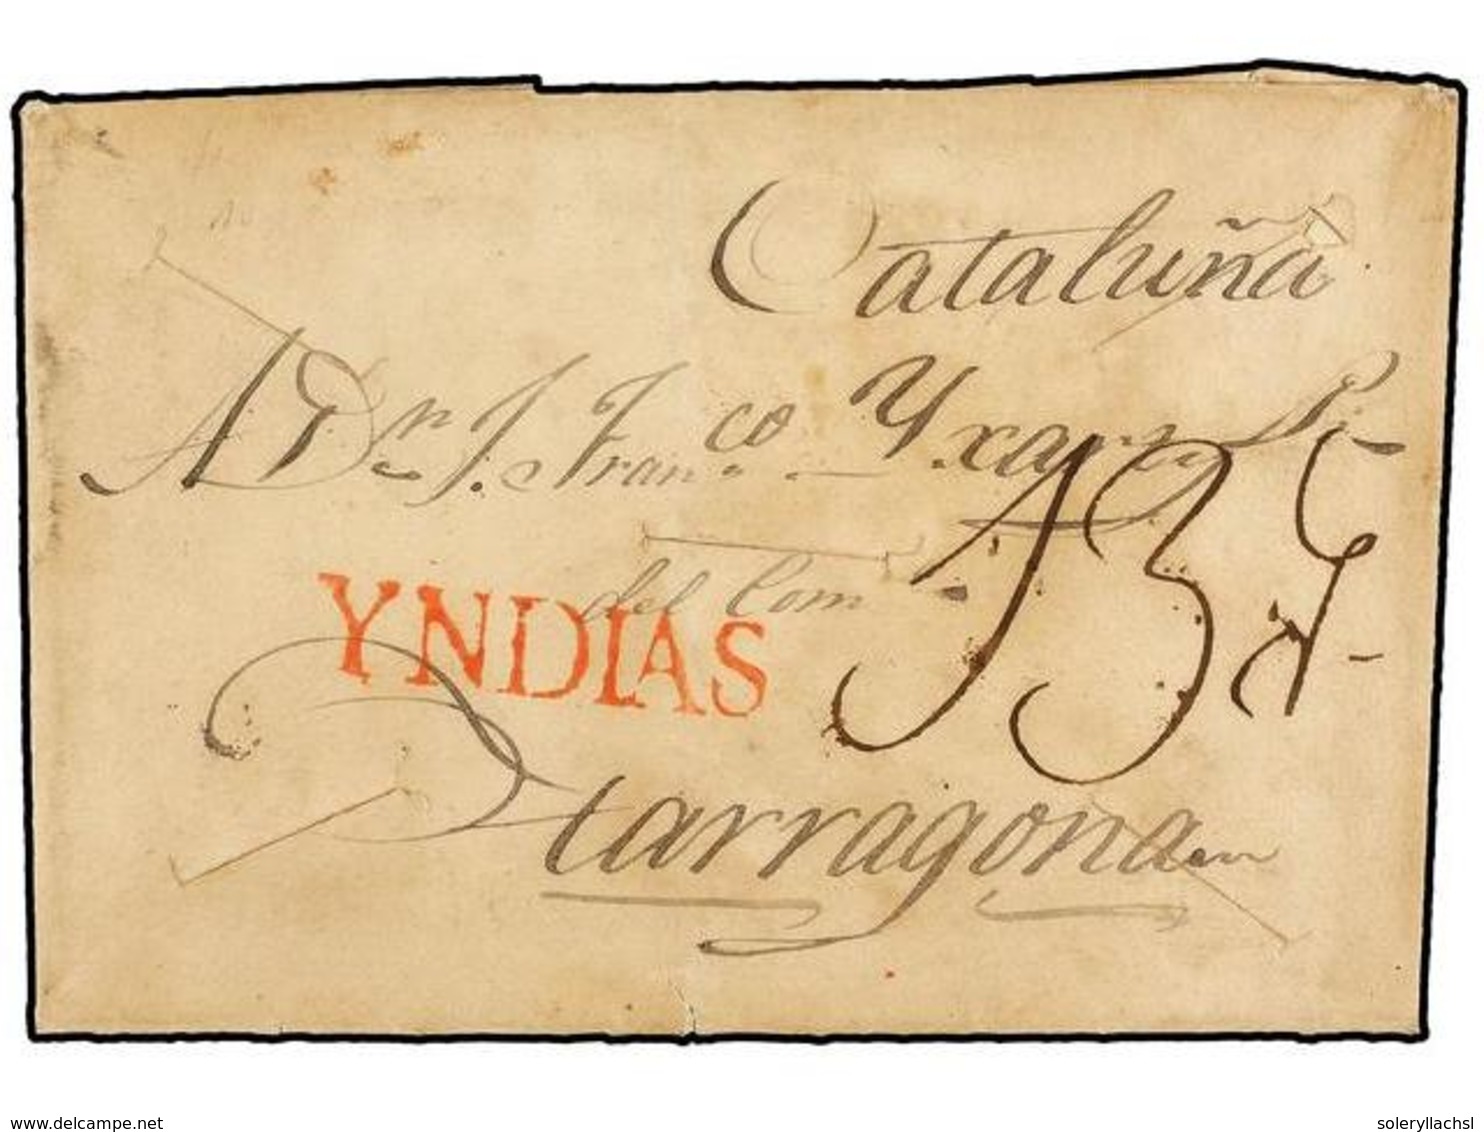 Cataluña
A Dn. J. Franco Yxart
del Com
YNDIAS
Tarragona
www.delcampe.net
soleryllachsl